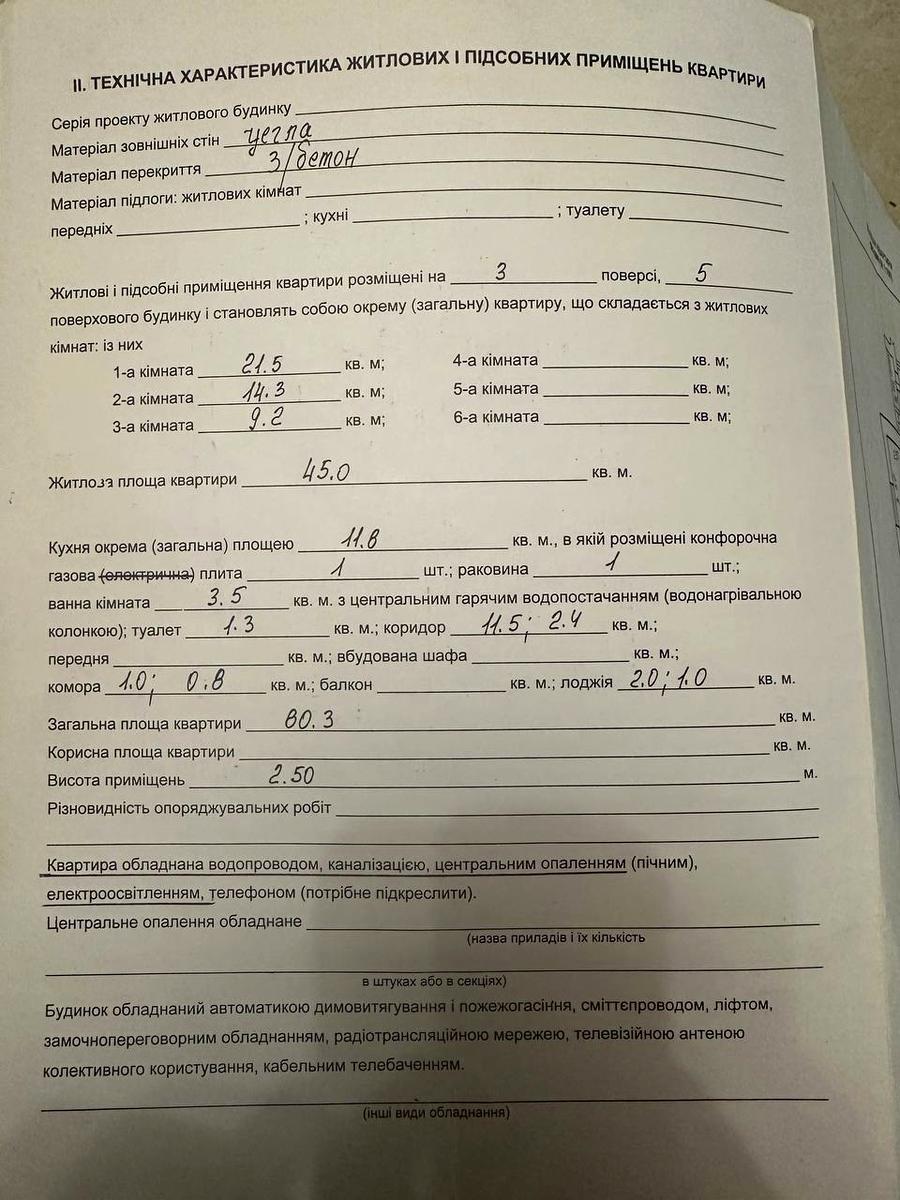 ІІ. ТЕХНІЧНА ХАРАКТЕРИСТИКА ЖИТЛОВИХ І ПІДСОБНИХ ПРИМІЩЕНЬ КВАРТИРИ
Серія проекту житлового будинку
Матеріал зовнішніх стін цегла
Матеріал перекриття з/бетон
Матеріал підлоги: житлових кімнат
передніх ; кухні ; туалету
Житлові і підсобні приміщення квартири розміщені на 3 поверсі, 5
поверхового будинку і становлять собою окрему (загальну) квартиру, що складається з житлових
кімнат: із них
1-а кімната 21.5 кв. м; 4-а кімната кв. м;
2-а кімната 14.3 кв. м; 5-а кімната кв. м;
3-а кімната 9.2 кв. м; 6-а кімната кв. м;
Житлова площа квартири 45.0 кв. м.
Кухня окрема (загальна) площею 11.8 кв. м., в якій розміщені конфорочна
газова (електрична) плита 1 шт.; раковина 1 шт.;
ванна кімната 3.5 кв. м. з центральним гарячим водопостачанням (водонагрівальною
колонкою); туалет 1.3 кв. м.; коридор 11.5; 2.4 кв. м.;
передня кв. м.; вбудована шафа кв. м.;
комора 1.0; 0.8 кв. м.; балкон кв. м.; лоджія 2.0; 1.0 кв. м.
Загальна площа квартири 80.3 кв. м.
Корисна площа квартири кв. м.
Висота приміщень 2.50 м.
Різновидність опоряджувальних робіт
Квартира обладнана водопроводом, каналізацією, центральним опаленням (пічним),
електроосвітленням, телефоном (потрібне підкреслити).
Центральне опалення обладнане
(назва приладів і їх кількість
в штуках або в секціях)
Будинок обладнаний автоматикою димовитягування і пожежогасіння, сміттєпроводом, ліфтом,
замочнопереговорним обладнанням, радіотрансляційною мережею, телевізійною антеною
колективного користування, кабельним телебаченням.
(інші види обладнання)